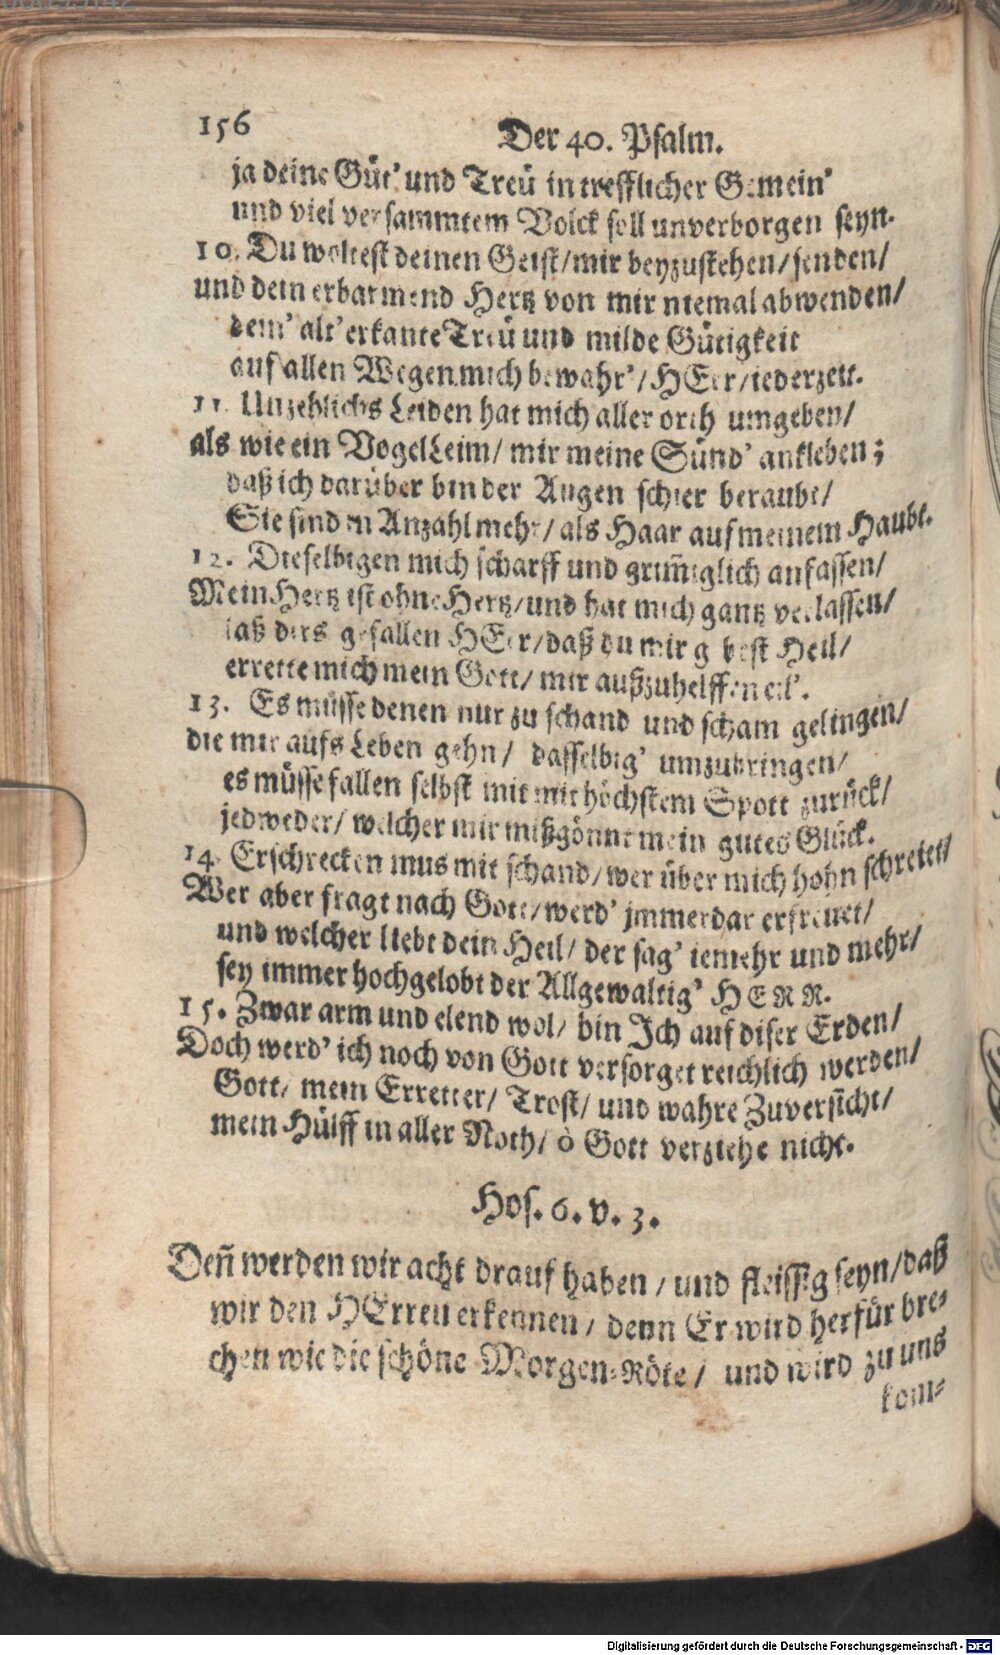 156
Der 40. Psalm.
ja deine Güt' und Treü in trefflicher Gemein'
und viel versammtem Volck soll unverborgen seyn.
10. Du woltest deinen Geist/mir beyzustehen/senden/
und dein erbarmend Hertz von mir niemal abwenden/
dein' alt' erkante Treü und milde Gütigkeit
auf allen Wegen mich bewahr'/HErr/iederzeit.
11. Unzehlichs Leiden hat mich aller orth umgeben/
als wie ein Vogel Leim/ mir meine Sünd' ankleben;
daß ich darüber bin der Augen schier beraubt/
Sie sind in Anzahl mehr/als Haar auf meinem Haubt.
12. Dieselbigen mich scharff und grim̃iglich anfassen/
Mein Hertz ist ohne Hertz/und hat mich gantz verlassen/
laß dirs gefallen HErr/daß du mir gebest Heil/
errette mich mein Gott/ mir außzuhelffen eil'.
13. Es müsse denen nur zu schand und scham gelingen/
die mir aufs Leben gehn/ dasselbig' umzubringen/
es müsse fallen selbst mit mit höchstem Spott zurück/
jedweder/ welcher mir mißgönnt mein gutes Glück.
14. Erschrecken mus mit schand/wer über mich hohn schreiet/
Wer aber fragt nach Gott/werd' jmmerdar erfreuet/
und welcher liebt dein Heil/ der sag' iemehr und mehr/
sey immer hochgelobt der Allgewaltig' HERR.
15. Zwar arm und elend wol/ bin Ich auf diser Erden/
Doch werd' ich noch von Gott versorget reichlich werden/
Gott/ mein Erretter/ Trost/ und wahre Zuversicht/
mein Hülff in aller Noth/ ô Gott verziehe nicht.
Hos. 6. v. 3.
Deñ werden wir acht drauf haben / und fleissig seyn/daß
wir den HErren erkennen / denn Er wird herfür bre-
chen wie die schöne Morgen-Röte / und wird zu uns
kom-
Digitalisierung gefördert durch die Deutsche Forschungsgemeinschaft - DFG